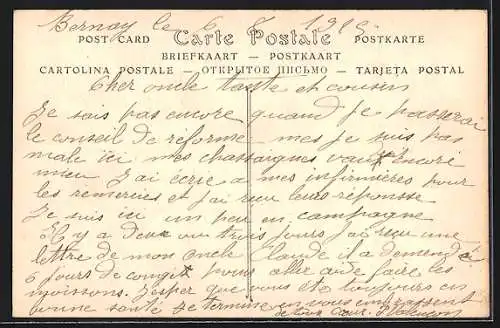 Bernay le 6 8 1915
POST CARD Carte Postale POSTKARTE
BRIEFKAART — POSTKAART
CARTOLINA POSTALE — ОТКРЫТОЕ ПИСЬМО — TARJETA POSTAL
Cher oncle tante et cousin
Je sais pas encore quand je passerai
le conseil de réforme mes je suis pas
male ici mes chassaigues vaut encore
mieu J'ai écrie a mes infirmières pour
les remercies et j'ai reçu leurs réponsse
Je suis ici un peu en campagne
Il y a deux ou trois jours j'ai reçu une
lettre de mon oncle Claude il a demendé
6 jours de congit pour aller aidé faire les
moissons. J'esper que vous ete toujours en
bonne santé Je termine en vous embrassent
de tout cœur.